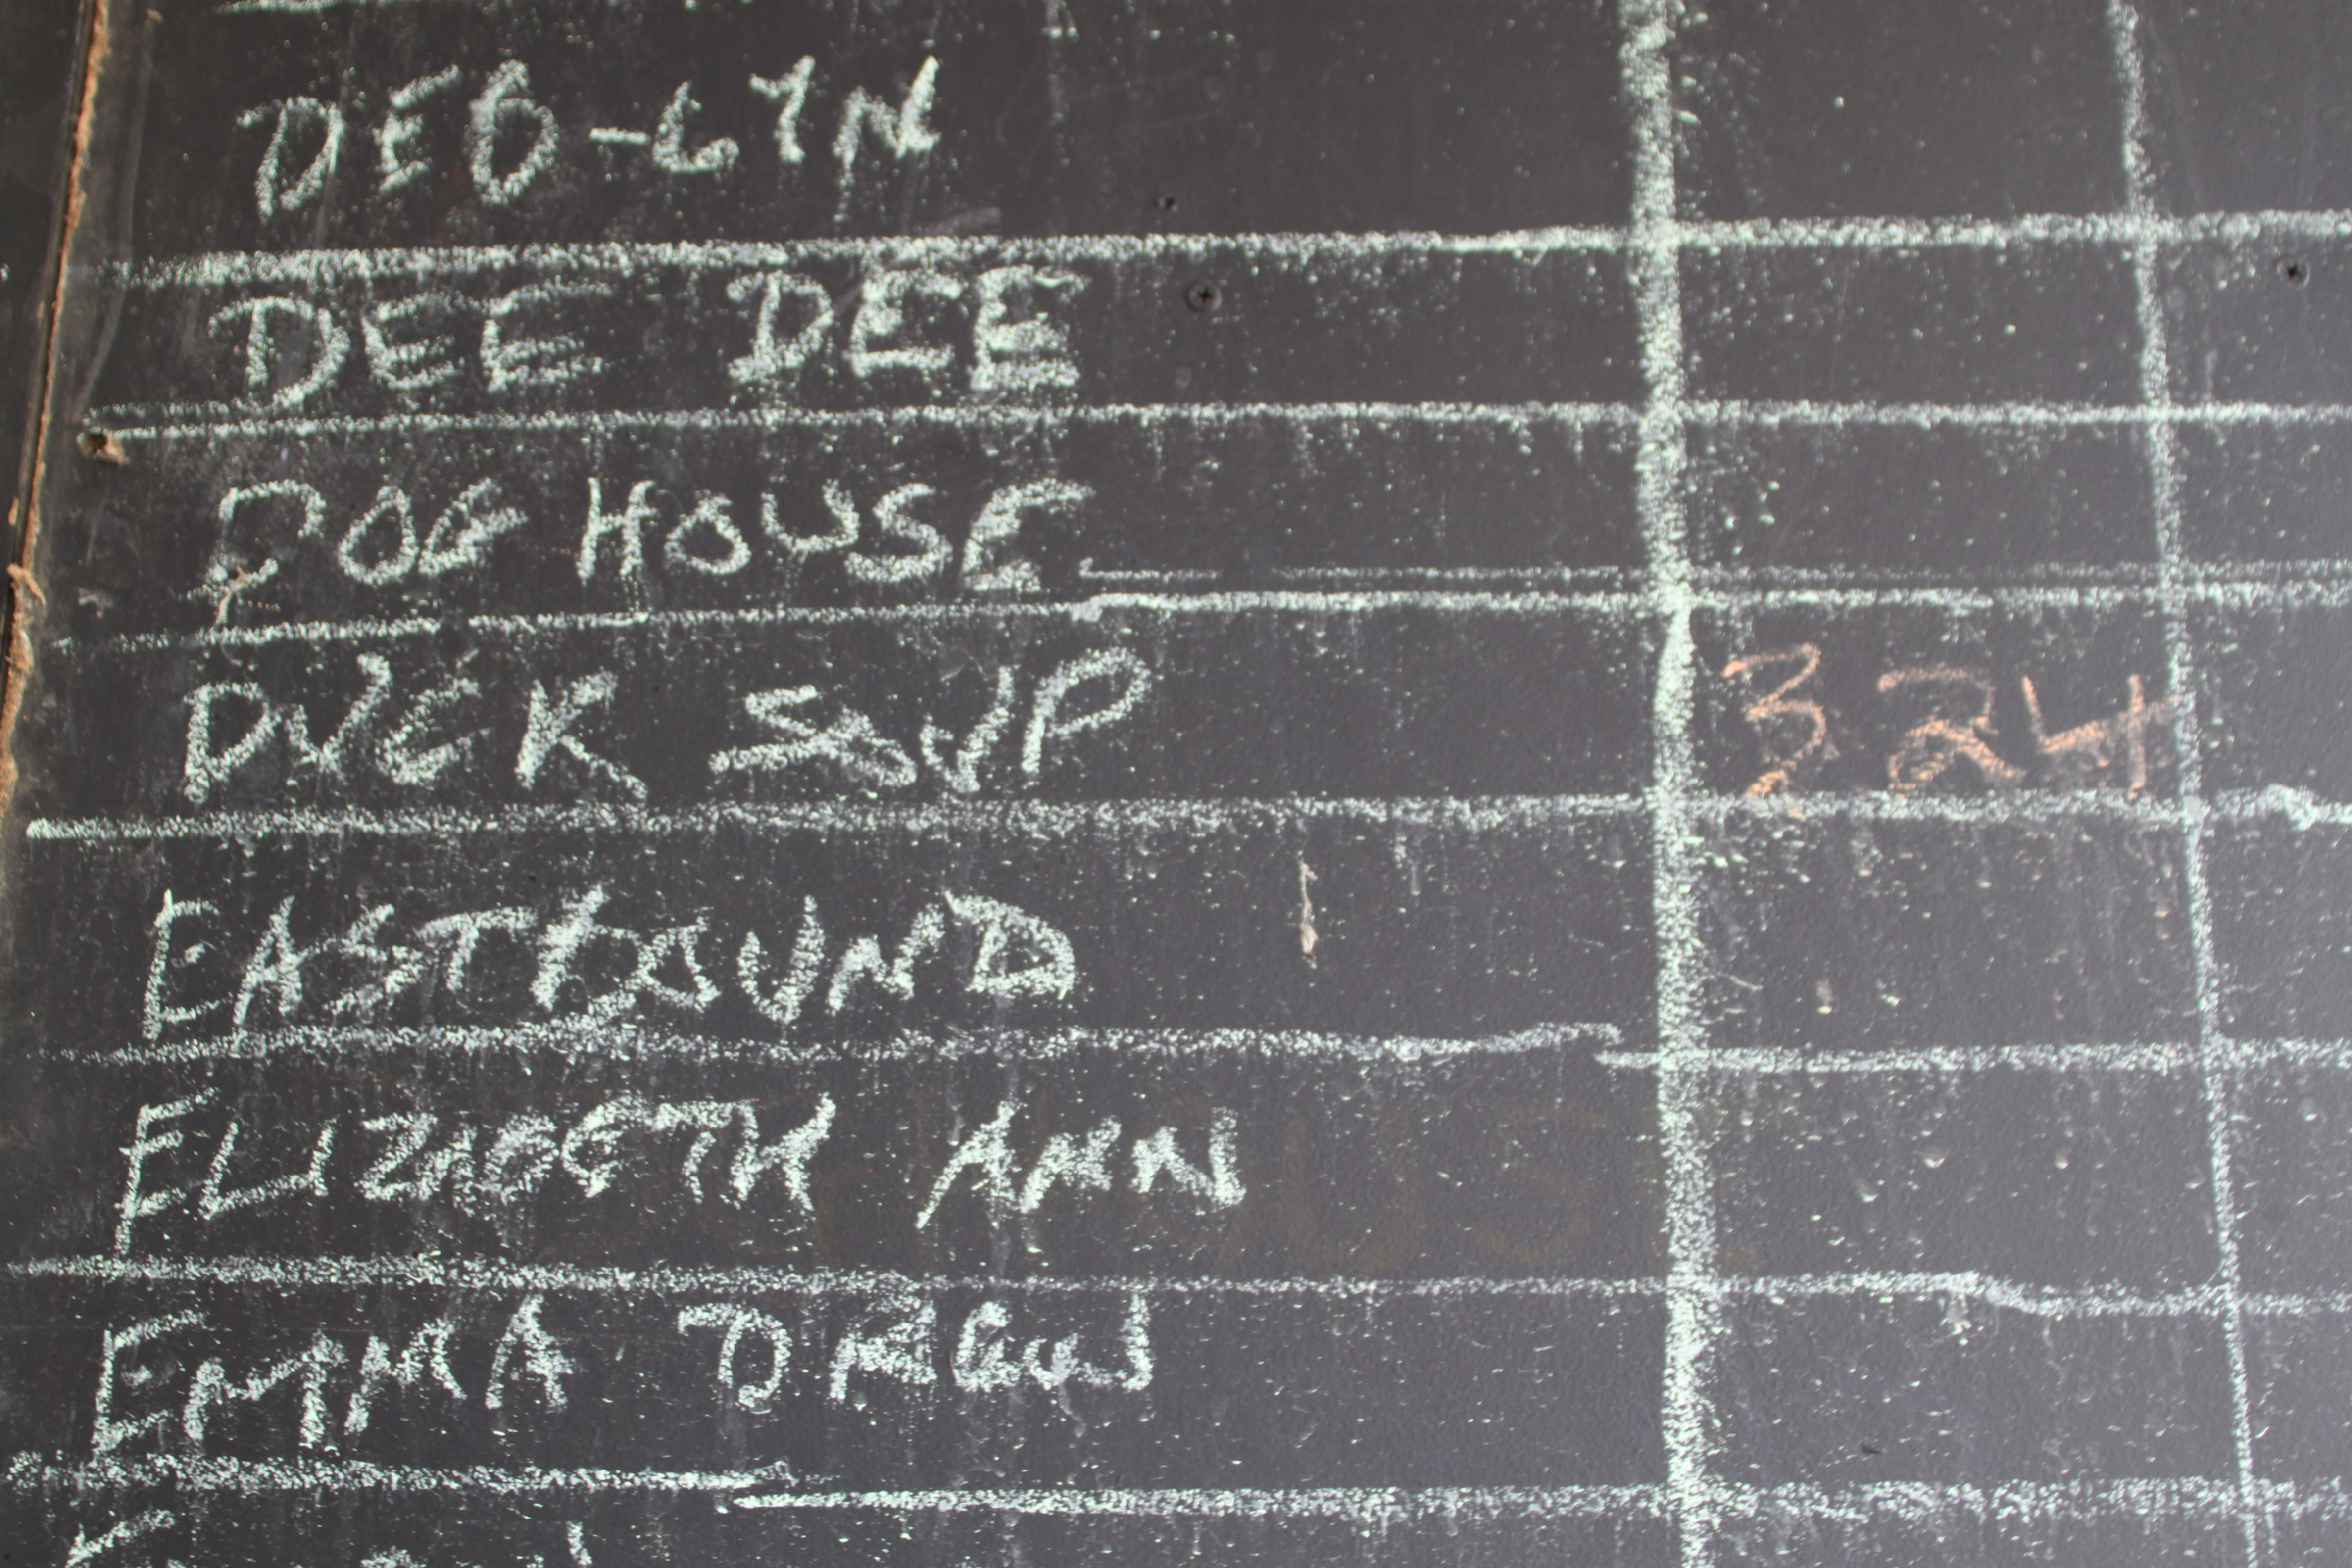 DEB-LYN
DEE DEE
DOG HOUSE
DUCK SOUP 324
EASTBOUND
ELIZABETH ANN
EMMA DREW